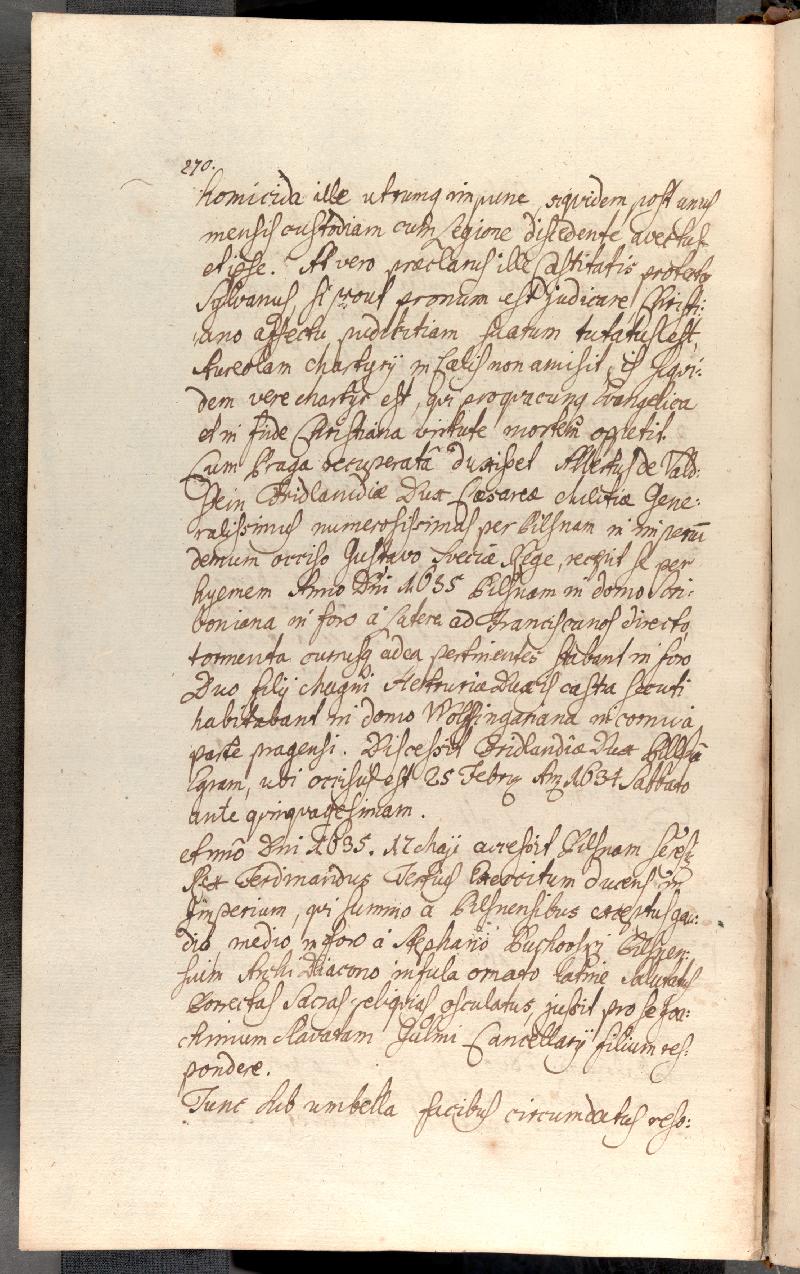 270.
homicida ille utrumq impune, siquidem post unius
mensis custodiam cum Legione discedente avectus
et ipse. At vero præclarus ille Castitatis protector
Sylvanus, si prout pronum est judicare Christi:
ano affectu pudicitiam suarum tutatus est,
Aureolam Martyrij in Cælis non amisit, is siqui:
dem vere Martyr est, qui pro quacunq Evangelica
et in fide Christiana virtute mortem oppetit.
Cum Praga recuperatâ duxisset Albertus de Vald:
stein Fridlandiæ Dux Cæsareæ Militiæ Gene:
ralissimus numerosissimas per Pilsnam in imperiũ
demum occiso Gustavo Sveciæ Rege, recepit se per
hyemem Anno Dñi 1635 Pilsnam in domo Scri:
boniana in foro à Latere ad Franciscanos directo,
tormenta currusq ad ea pertinentes stabant in foro
Duo filij Magni Hetruriæ Ducis castra secuti
habitabant in domo Wolfingariana in cornu à
parte pragensi. Discessit Fridlandiæ Dux Pilsnâ
Egram, ubi occisus est 25 Febry Añ 1634 Sabbato
ante quinquagesimam.
et Anno Dñi 1635. 17 Maji accessit Pilsnam Seress:
Rex Ferdinandus Tertius Exercitum ducens in
Imperium, qui summo à Pilsnensibus exceptus gau:
dio medio in foro à Stephano Pilsnen:
sium Archi Diacono infula ornato latine salutatus
Porrectas Sacras reliquias osculatus, jussit pro se Joa:
chimum Slavatam Gulmi Cancellarij filium res:
pondere.
Tunc sub umbella facibus circumdatus reso: